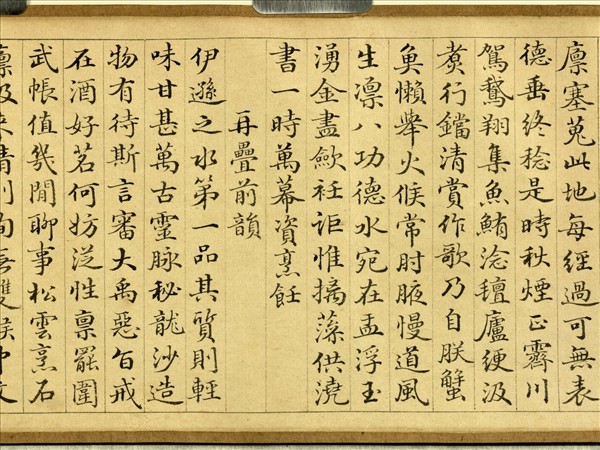 廩塞蒐此地每經過可無表
德垂終稔是時秋煙正霽川
駕鵞翔集魚鮪淰氊廬綆汲
煑行鐺清賞作歌乃自朕蟹
魚懶舉火候常肘腋慢道風
生凛八功德水宛在盂浮玉
湧金盡歛衽詎惟摛藻供澆
書一時萬幕資烹飪
再疊前韻
伊遜之水第一品其質則輕
味甘甚萬古靈脉秘龍沙造
物有待斯言審大禹惡旨戒
在酒好茗何妨泛性稟罷圍
武帳值幾閒聊事松雲烹石